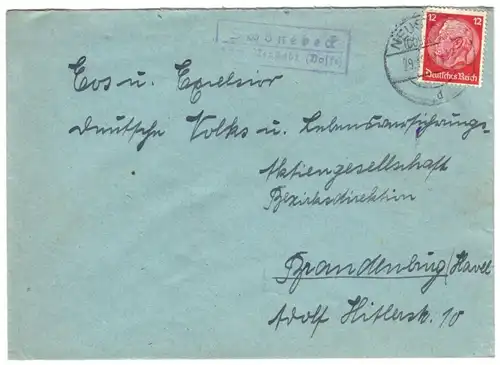 Schönebeck
Neustadt (Dosse)
NEUS
12 12
Deutsches Reich
d
Eos u. Excelsior
deutsche Volks u. Lebensversicherungs-
Aktiengesellschaft
Bezirksdirektion
Brandenburg/Havel
Adolf Hitlerstr. 10